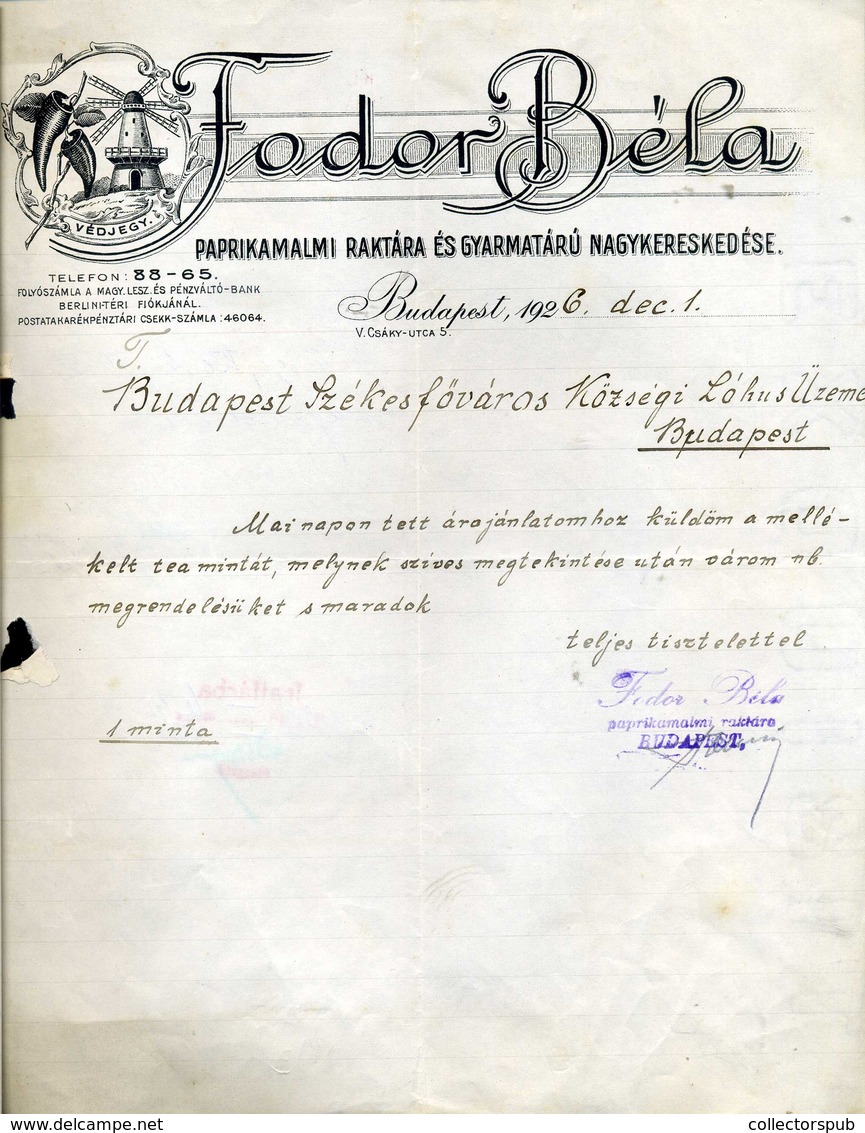 Fodor Béla
VÉDJEGY.
PAPRIKAMALMI RAKTÁRA ÉS GYARMATÁRÚ NAGYKERESKEDÉSE.
TELEFON: 88-65.
FOLYÓSZÁMLA A MAGY. LESZ. ÉS PÉNZVÁLTÓ-BANK
BERLINI-TÉRI FIÓKJÁNÁL.
POSTATAKARÉKPÉNZTÁRI CSEKK-SZÁMLA: 46064.
Budapest, 1926. dec. 1.
V. CSÁKY-UTCA 5.
T.
Budapest Székesfőváros Községi Lóhus Üzeme
Budapest
Mai napon tett árajánlatomhoz küldöm a mellé-
kelt tea mintát, melynek szives megtekintése után várom nb.
megrendelésüket s maradok
teljes tisztelettel
Fodor Béla
paprikamalmi raktára
BUDAPEST,
1 minta
collectorspub